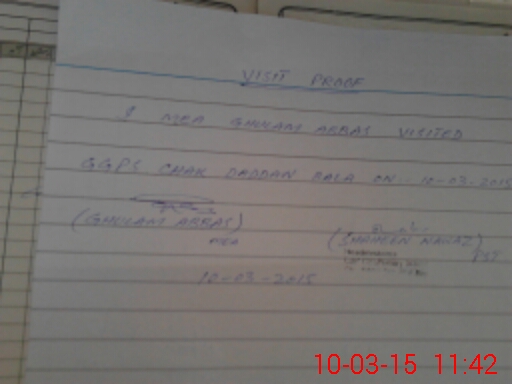 VISIT PROOF
I MEA GHULAM ABBAS VISITED
GGPS CHAK DADDAN BALA ON.. 10-03-2015
(GHULAM ABBAS)
MEA
(SHAHEEN NAWAZ)
PST
10-03-2015
10-03-15 11:42